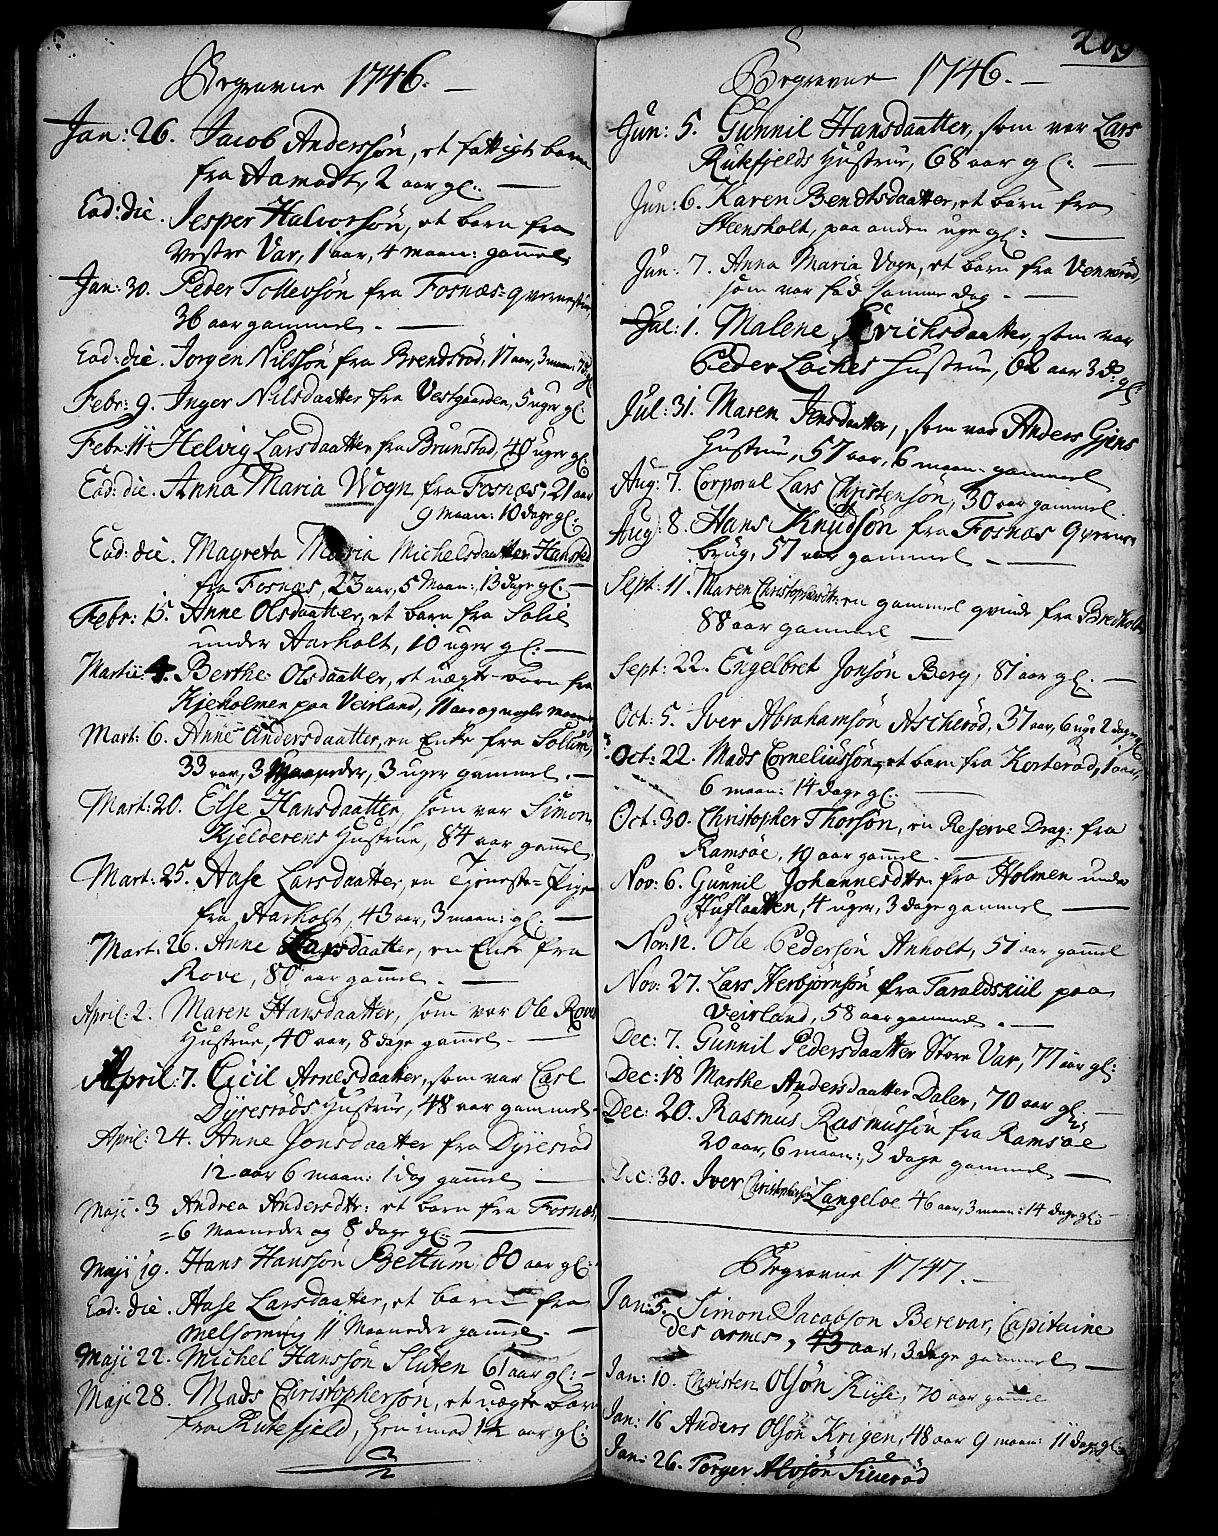 Begravne 1746.
Jan: 26. Jacob Andersøn, et fattigt barn
fra Aamodt, 2 aar gl:
Ead: die. Jesper Halvorsøn, et barn fra
Vestre Var, 1 aar, 4 maan: gam̄el
Jan: 30. Peder Tollevsøn fra Fosnæs=
36 aar gammel.
Ead: die. Jørgen Nilssøn fra Brendsrød, 17 aar, 3 maan:
Febr: 9. Inger Nilsdaatter fra Vestgaarden, 5 uger gl:
Febr: 11. Helvig Larsdaatter, fra Brunstad, 40 uger gl:
Ead: die. Anna Maria Wogn fra Fosnæs, 21 aar
9 maan: 10 dage gl:
Ead: die. Magreta Maria Michelsdaatter Hansted
fra Fosnæs, 23 aar, 5 Maan: 13 dage gl:
Febr: 15. Anne Olsdaatter, et barn fra Solie
under Aarholt, 10 uger gl:
Martii: 4. Berthe Olsdaatter, et uægte barn fra
Kjeholmen paa Veirland, 11 aar og nogle maan
Mart: 6. Anne Andersdaatter, en Enke fra Solum,
33 aar, 3 Maaneder, 3 uger gammel.
Mart: 20. Else Hansdaatter, som var Simon
Kjelderens Hustrue, 84 aar gam̄el
Mart: 25. Aase Larsdaatter, en Tjeneste=Pige
fra Aarholt, 43 aar, 3 maan: gl:
Mart: 26. Anne Larsdaatter, en Enke fra
Rove, 80 aar gam̄el.
April: 2. Maren Hansdaatter, som var Ole Rove
Hustrue, 40 aar, 8 dage gam̄el
April: 7. Cicil Arnesdaatter, som var Carl
Dyresrøds Hustrue, 48 aar gammel
April: 24. Anne Jonsdaatter fra Dyresrød
12 aar 6 maan: 1 dag gam̄el
Maji. 3 Andrea Andersdtr: et barn fra Fosnæs,
=6 Maaneder og 8 dage gl:
Maji 19. Hans Hanssøn Bettum, 80 aar gl:
Ead: die. Aase Larsdaatter, et barn fra
Melsomvig 11 Maaneder gam̄el.
Maji 22. Michel Hanssøn Sluten 61 aar gl:
Maji 28. Mads Christophersøn, et uægte barn
fra Rukefjeld, hen imod 14 aar gl:
209
Begravne 1746.
Jun: 5. Gunnil Hansdaatter, som var Lars
Rukefjelds Hustrue, 68 aar gl:
Jun: 6. Karen Bendtsdaatter, et barn fra
Steensholt, paa anden uge gl:
Jun: 7. Anna Maria Vogn, et barn fra Vennerød,
som var fød samme dag.
Jul: 1. Malene Erichsdaatter, som var
Peder Laches Hustrue, 62 aar 3 d: gl:
Jul: 31. Maren Jensdaatter, som var Anders Gjens
Hustrue, 57 aar, 6 maan: gammel
Aug: 7. Corporal Lars Christensøn, 30 aar gammel.
Aug: 8. Hans Knudsøn fra Fosnæs qverne
brug, 57 aar gammel
Sept: 11. Maren Christophersdtr: en gammel qvinde fra Bredholt
88 aar gammel
Sept: 22. Engelbret Jonsøn Berg, 81 aar gl.
Oct: 5. Iver Abrahamsøn Ascherød, 37 aar, 6 uge 2 dage gl:
Oct: 22. Mads Corneliussøn, et barn fra Korterød, 1 aar,
6 maan: 14 dage gl:
Oct: 30. Christopher Thorsøn, en Reserve Drag: fra
Ramsøe, 19 aar gam̄el.
Nov: 6. Gunnil Johannesdtr fra Holmen under
Huflaatten, 4 uger, 3 dage gammel
Nov: 12. Ole Pedersøn Anholt, 51 aar gam̄el
Nov: 27. Lars Herbjørnsøn fra Taraldskiil paa
Veirland, 58 aar gammel.
Dec: 7. Gunnil Pedersdaatter Store Var, 77 aar gl:
Dec: 18 Marthe Andersdaatter Dalen, 70 aar gl:
Dec: 20. Rasmus Rasmussøn fra Ramsøe
20 aar, 6 maan:, 3 dage gammel
Dec: 30. Iver Christophersøn Langeloe 46 aar, 3 maan: 14 dage gl:
Begravne 1747.
Jan: 5. Simon Jacobsøn Berevar, Capitaine
des armes, 43 aar, 3 dage gammel
Jan: 10. Christen Olsøn Riise, 70 aar gam̄el
Jan: 16 Anders Olsøn Krigen, 48 aar 9 maan: 11 dage gl:
Jan: 26. Torger Alvsøn Tiuerød